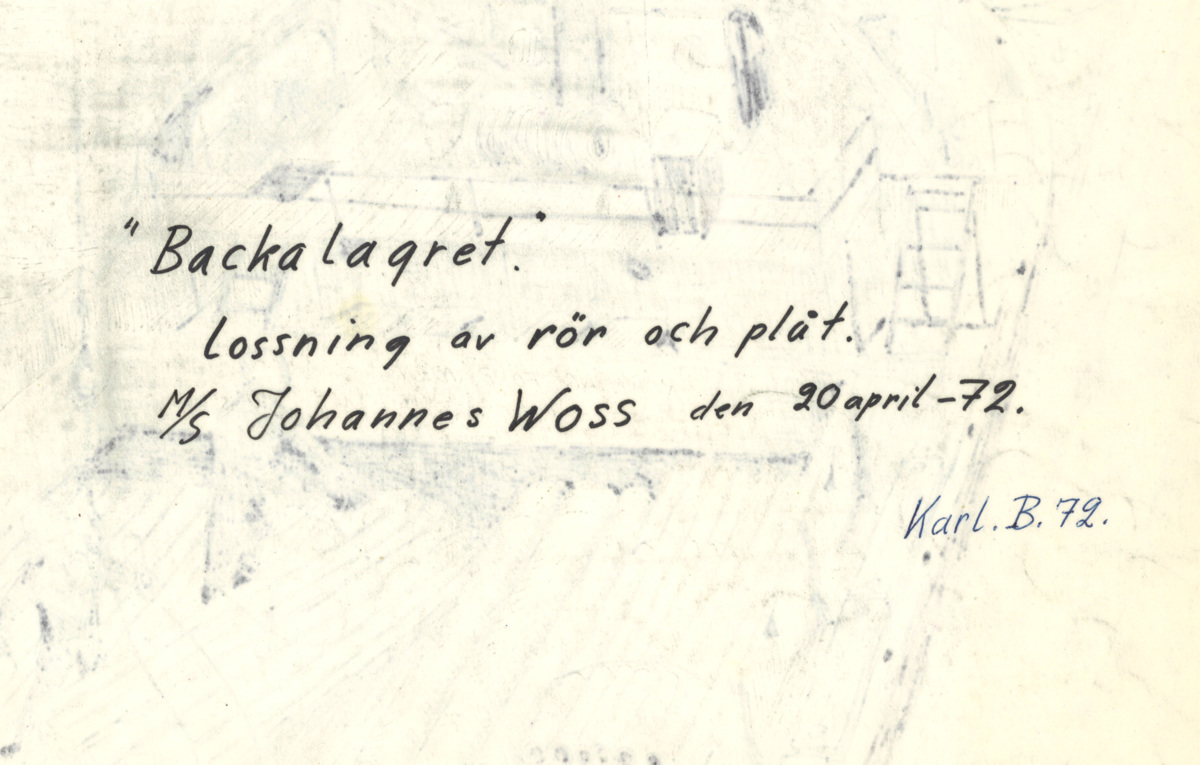 "Backalagret."
Lossning av rör och plåt.
M/S Johannes Woss den 20 april -72.
Karl. B. 72.